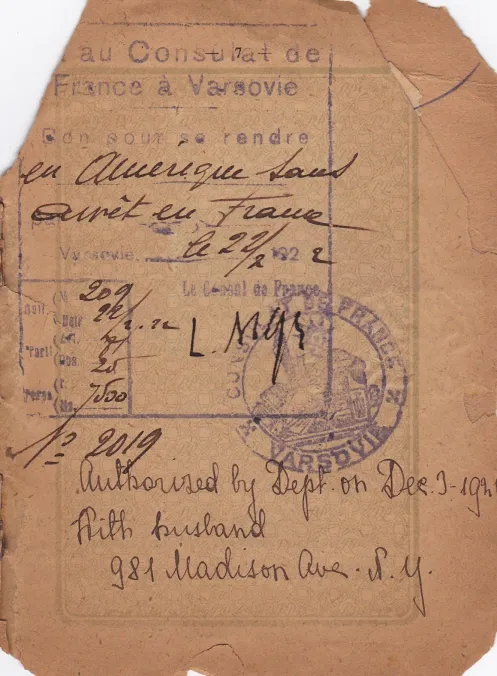 7
au Consulat de
France à Varsovie
Bon pour se rendre
en Amérique sans
arrêt en France
Varsovie, le 22/2 1922
Le Consul de France
209
22/2.22
20
25
7500
L. Mys
CONSULAT DE FRANCE
VARSOVIE
No 2019
Authorized by Dept. on Dec. 3-1921
With husband
981 Madison Ave. N.Y.